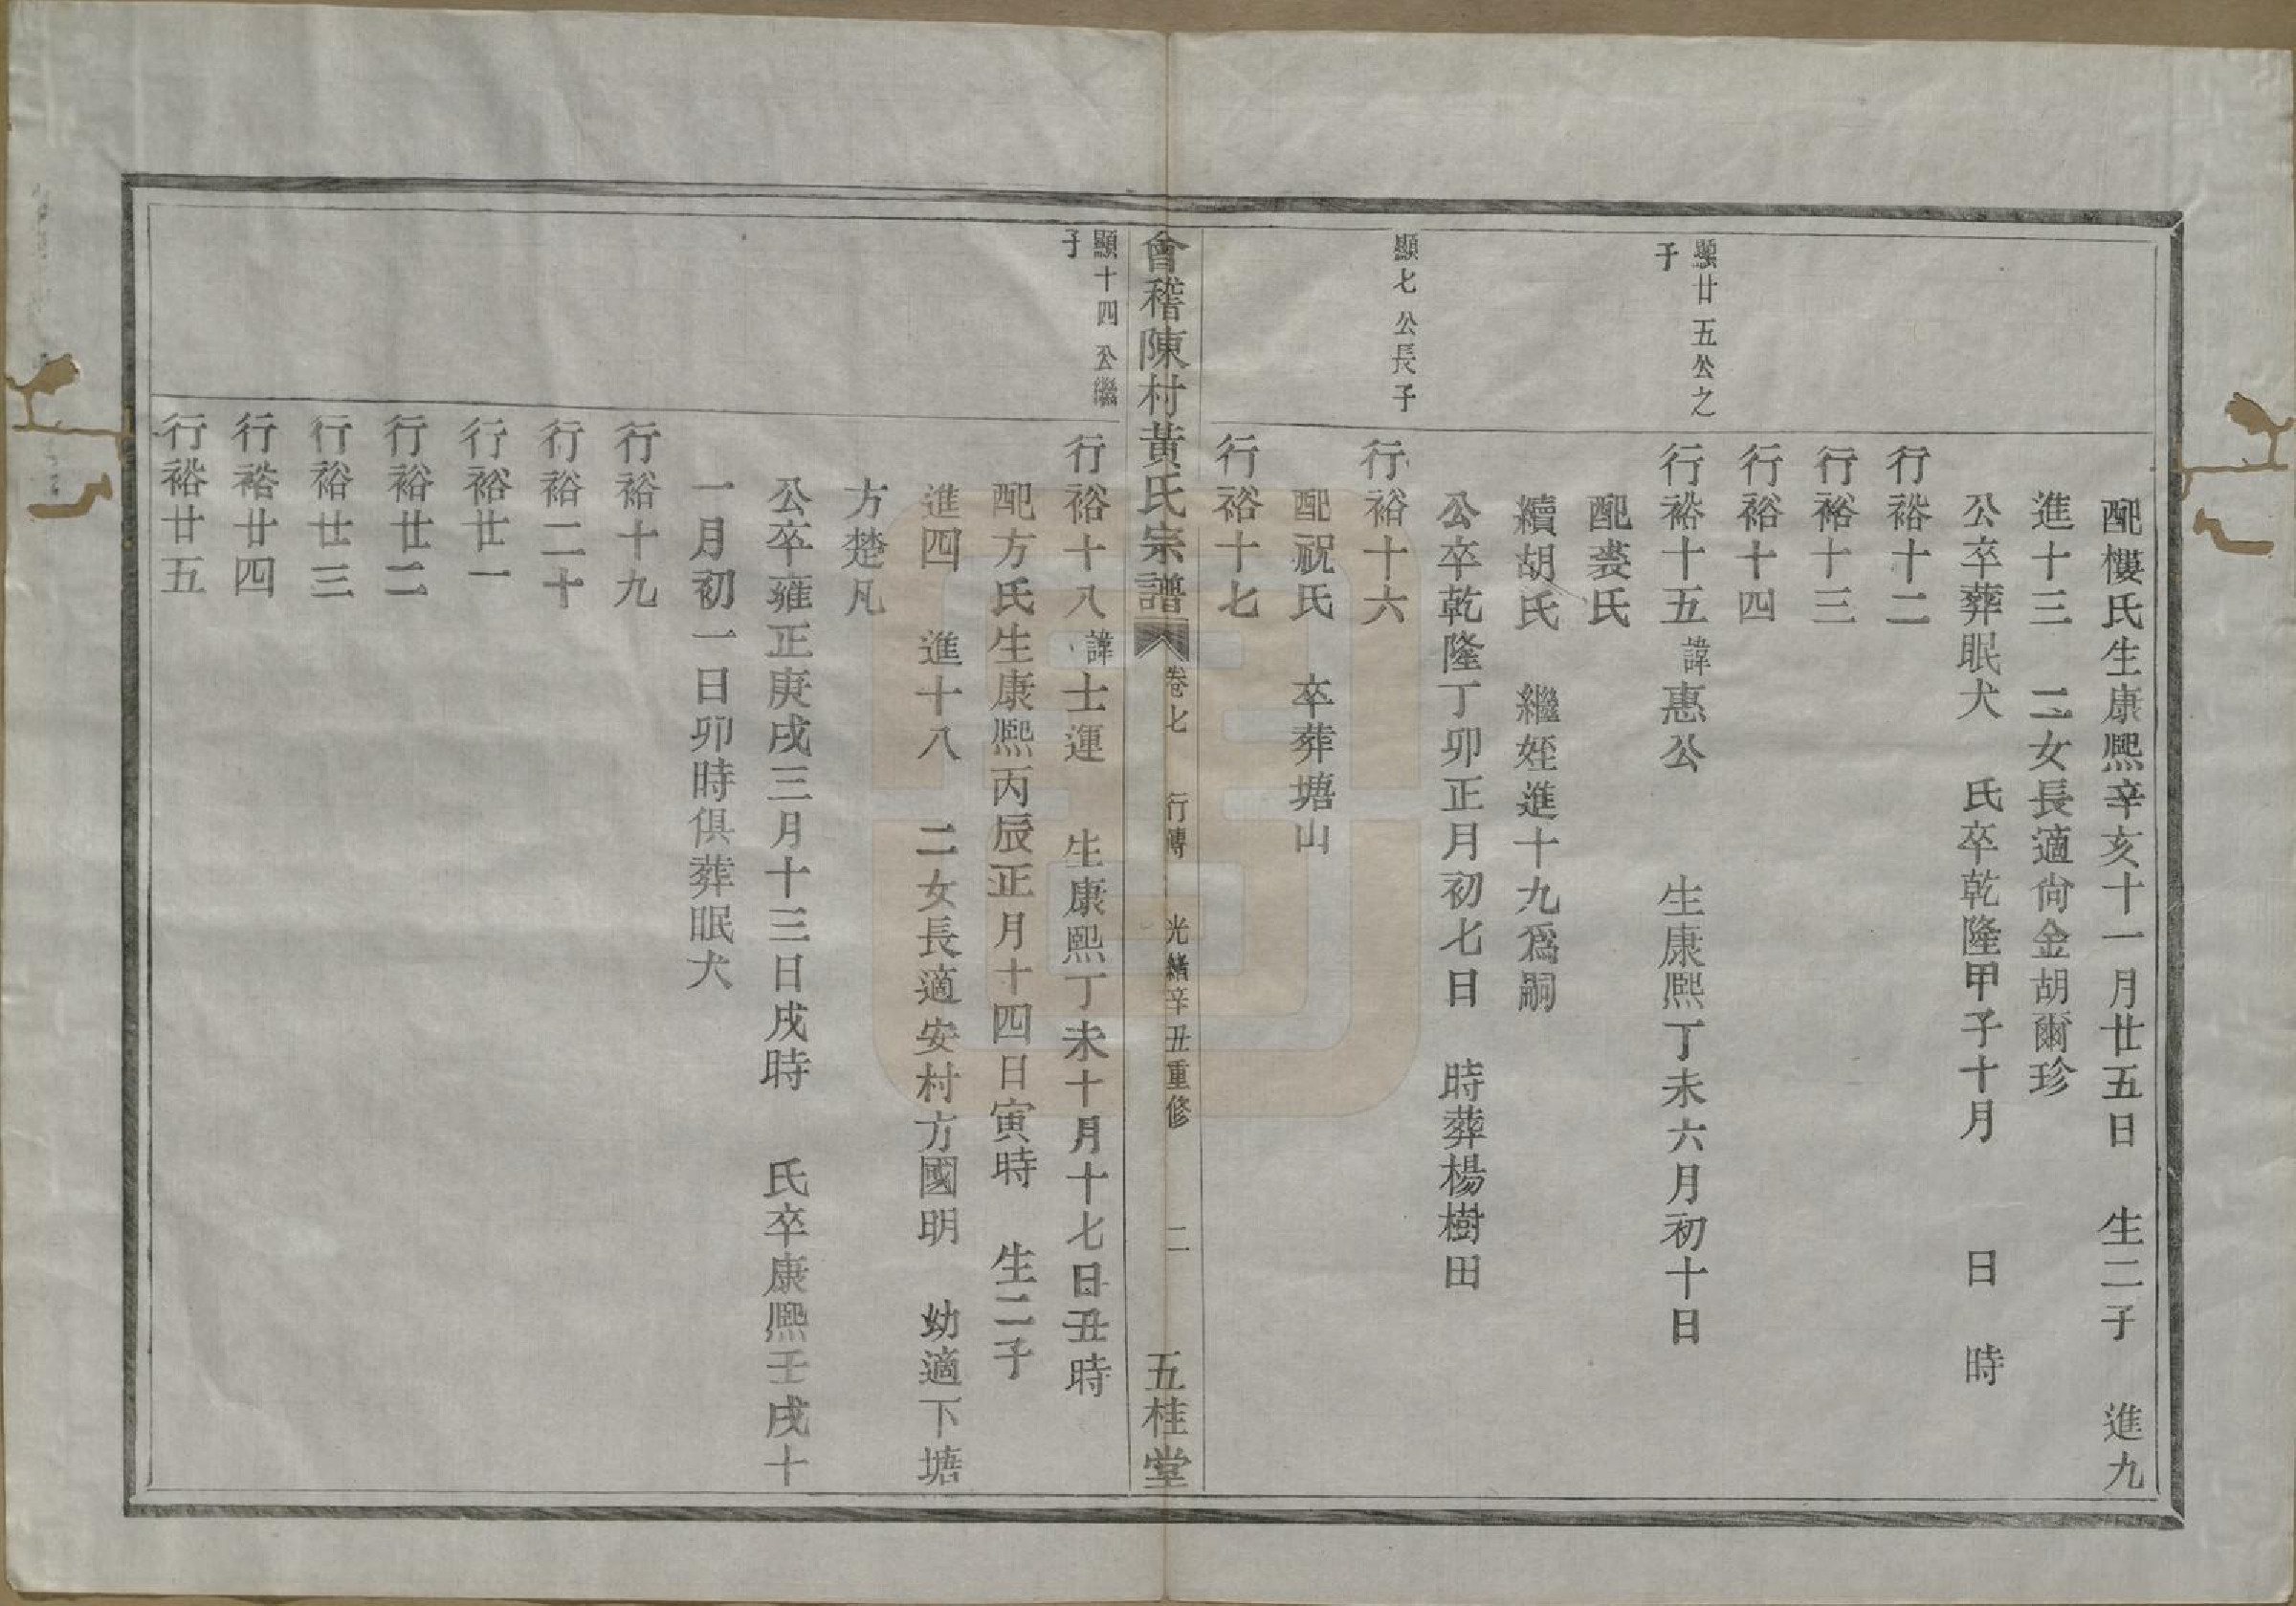 配樓氏生康熙辛亥十一月廿五日　生二子　進九
進十三　二女長適尙金胡爾珍
公卒葬眠犬　氏卒乾隆甲子十月　　日　時
行裕十二
行裕十三
行裕十四
顯廿五公之子
行裕十五諱惠公　　生康熙丁未六月初十日
配裘氏
續胡氏　繼姪進十九爲嗣
公卒乾隆丁卯正月初七日　時葬楊樹田
顯七公長子
行裕十六
配祝氏　卒葬塘山
行裕十七
會稽陳村黃氏宗譜　卷七　行傳　光緒辛丑重修　二　五桂堂
顯十四公繼子
行裕十八諱士運　生康熙丁未十月十七日丑時
配方氏生康熙丙辰正月十四日寅時　生二子
進四　進十八　二女長適安村方國明　幼適下塘
方楚凡
公卒雍正庚戌三月十三日戌時　氏卒康熙壬戌十
一月初一日卯時俱葬眠犬
行裕十九
行裕二十
行裕廿一
行裕廿二
行裕廿三
行裕廿四
行裕廿五